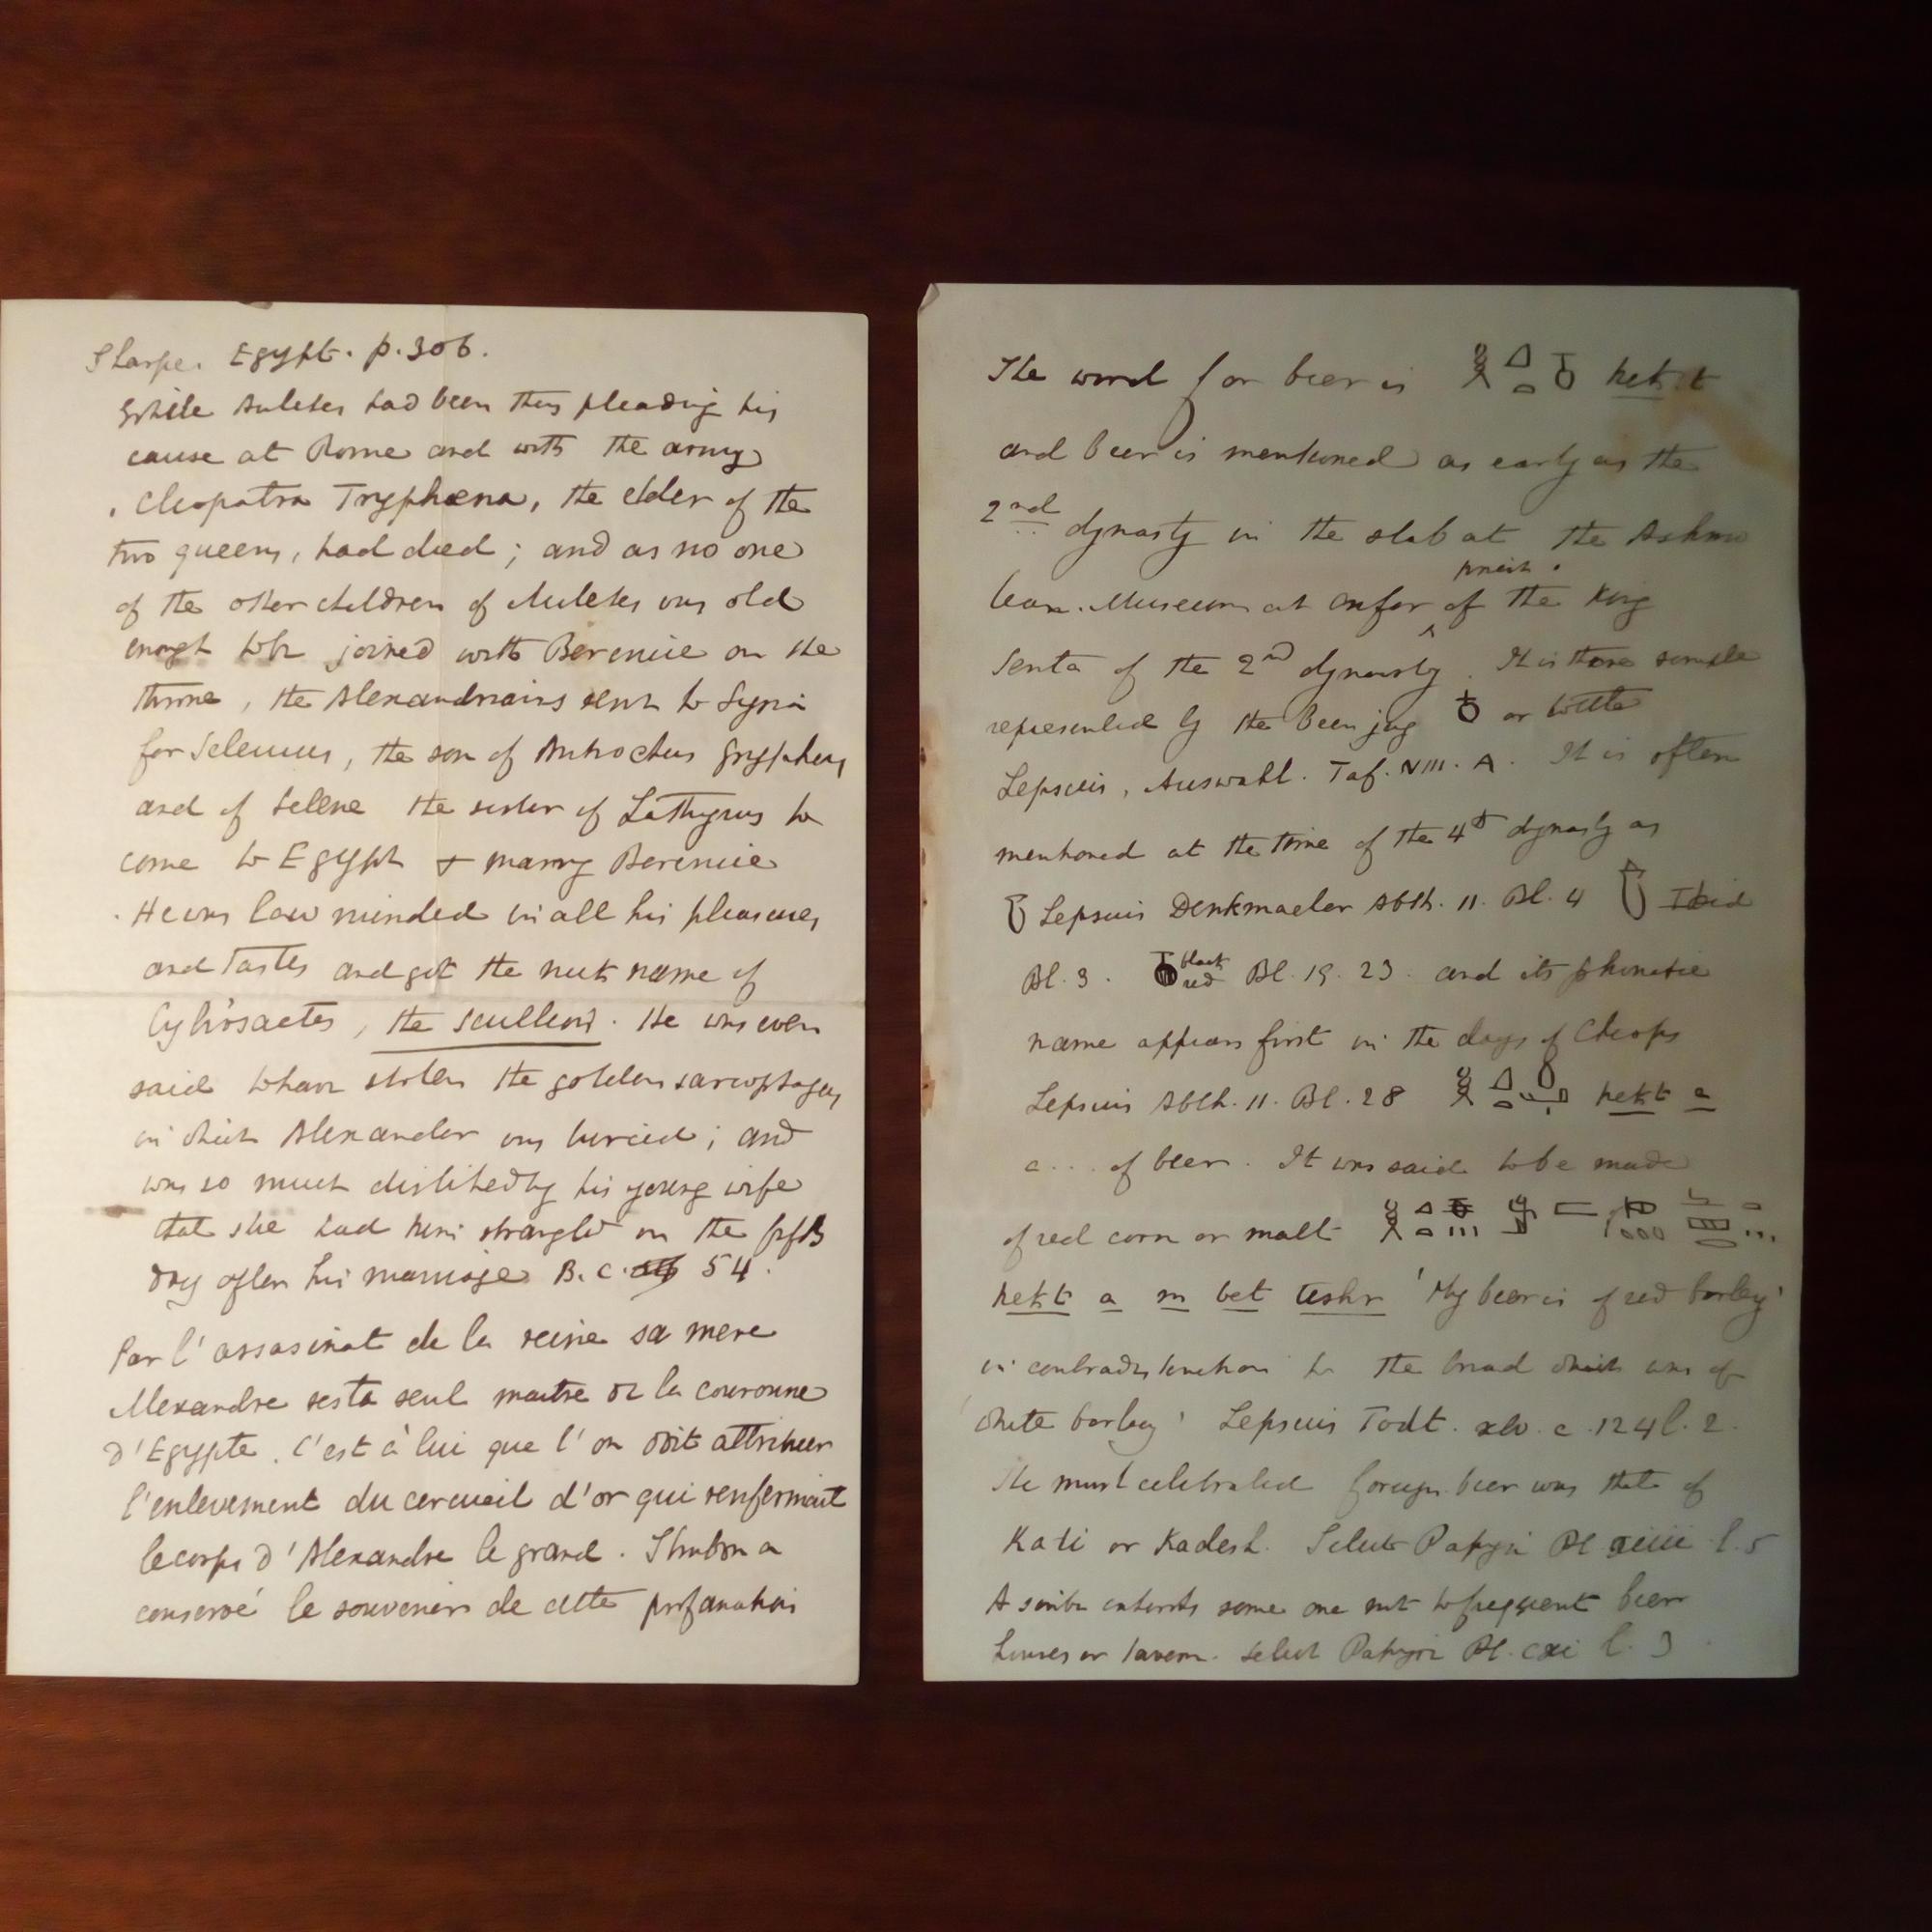 Sharpe. Egypt. p. 306.
While Auletes had been thus pleading his
cause at Rome and with the army
Cleopatra Tryphæna, the elder of the
two queens, had died; and as no one
of the other children of Auletes was old
enough to be joined with Berenice on the
throne, the Alexandrians sent to Syria
for Seleucus, the son of Antiochus Gryphus
and of Selene the sister of Lathyrus to
come to Egypt & marry Berenice
He was low minded in all his pleasures
and tastes and got the nick name of
Cybiosactes, the scullion. He was even
said to have stolen the golden sarcophagus
in which Alexander was buried; and
was so much disliked by his young wife
that she had him strangled on the fifth
day after his marriage B.C. 54.
Par l'assasinat de la reine sa mere
Alexandre resta seul maitre de la couronne
d'Egypte. C'est à lui que l'on doit attribuer
l'enlevement du cercueil d'or qui renfermait
le corps d'Alexandre le grand. Strabon a
conservé le souvenir de cette profanation
The word for beer is hekt
and beer is mentioned as early as the
2nd dynasty in the slab at the Ashmo
lean. Museum at Oxford of the King
priest.
Senta of the 2nd dynasty. It is there simple
represented by the beer jug or bottle
Lepsius, Auswahl. Taf. VIII. A. It is often
mentioned at the time of the 4th dynasty as
Lepsius Denkmaeler Abth. 11. Bl. 4 Ibid
Bl. 3. black red Bl. 19. 23. and its phonetic
name appears first in the days of Cheops
Lepsius Abth. 11. Bl. 28 hekt a
a... of beer. It was said to be made
of red corn or malt
hekt a m bet teshr 'My beer is of red barley'
in contradistinction to the bread which was of
'white barley' Lepsius Todt. xlv. c. 124 l. 2.
The most celebrated foreign beer was that of
Kati or Kadesh. Select Papyri Pl l. 5
A scribe exhorts some one not to frequent beer
houses or tavern. Select Papyri Pl. cxi l. 3